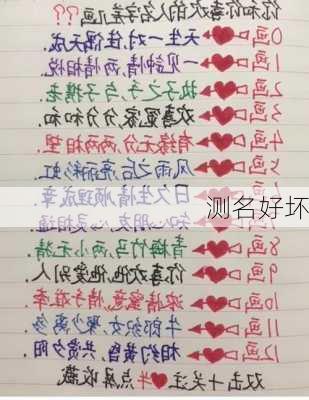 你和你喜欢的人名字差几画??
0画 天生一对,佳偶天成.
1画 一见钟情,两情相悦.
2画 执子之手,与子携老.
3画 欢喜冤家,分分和和.
4画 有缘无分,两两相望.
画 风雨之后,亮丽彩虹
日久生情,顺理成章.
测名好坏
知心朋友,心灵相通
8画 青梅竹马,两小无猜
9画 你喜欢他,他爱别人
10画 浓情蜜意,情字难
11画 牛郎织女,聚少离多
12画 相约黄昏,共赏夕阳.
双击+关注 点屏收藏